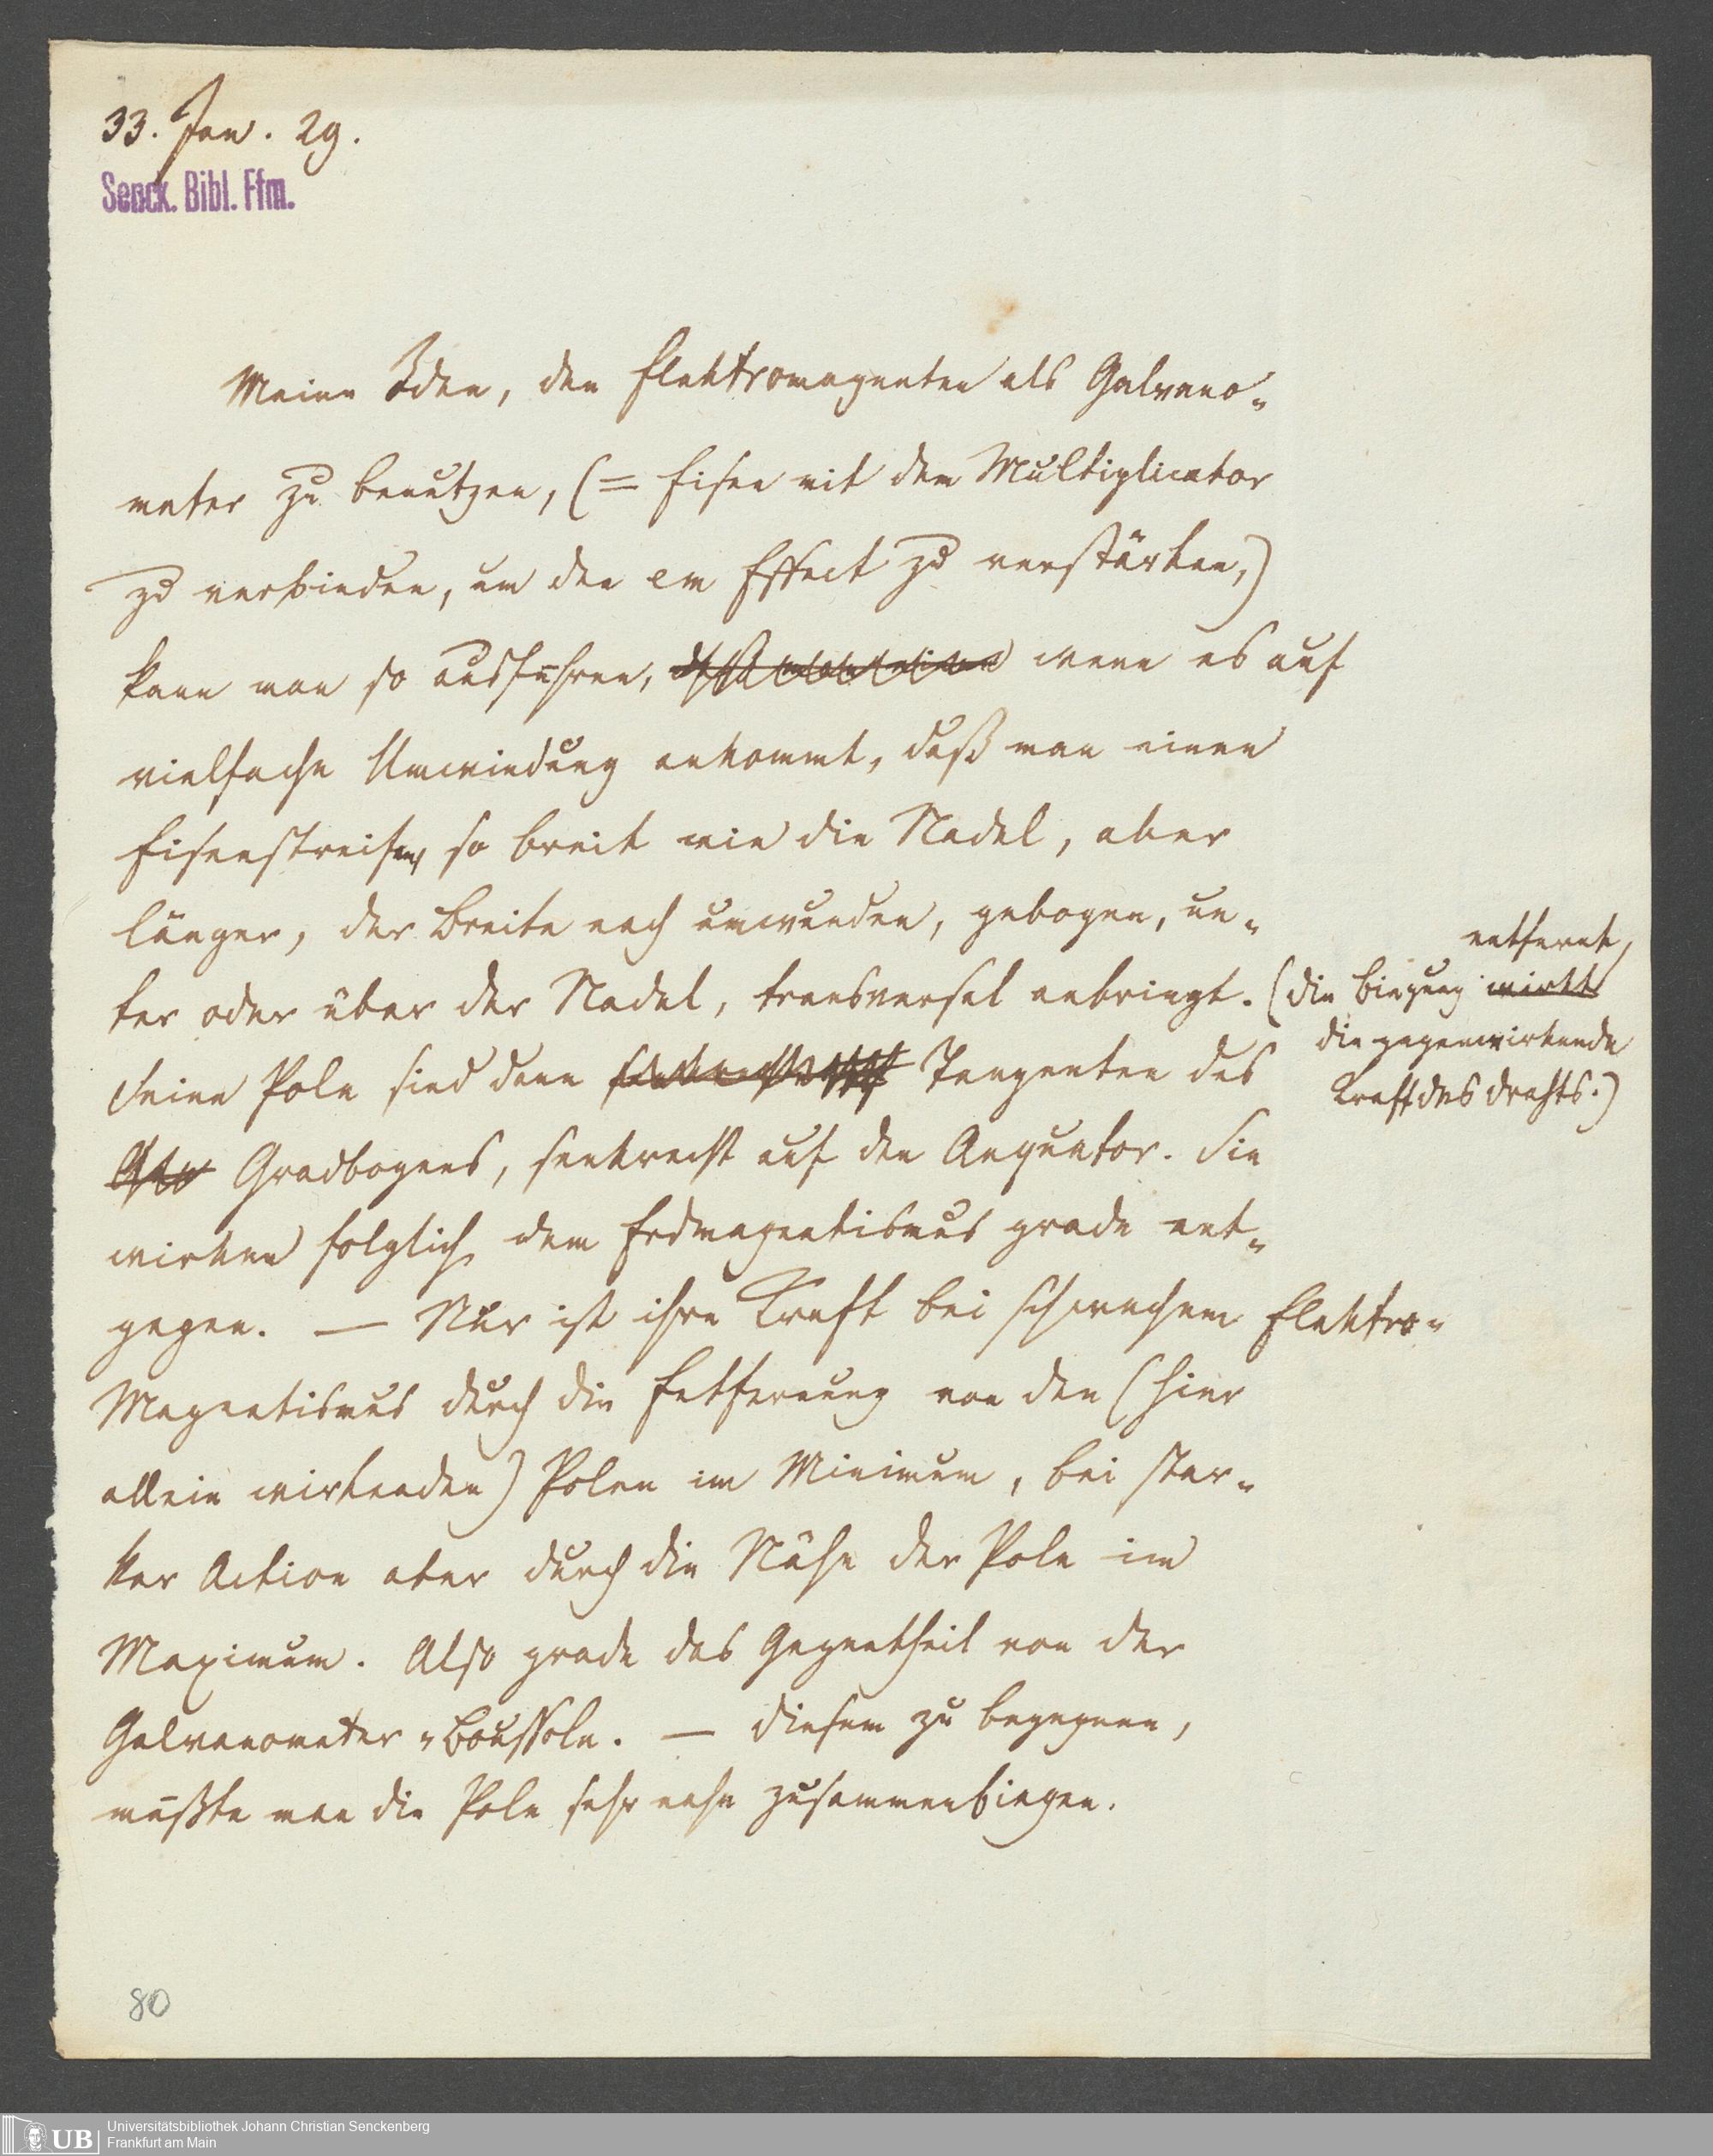 33. Jan. 29.
Senck. Bibl. Ffm.
Meine Idee, den Elektromagneten als Galvano-
meter zu benutzen, (= Eisen mit dem Multiplicator
zu verbinden, um den em Effect zu verstärken,)
kann man so ausführen, wenn es auf
vielfache Umwindung ankommt, daß man einen
Eisenstreifen, so breit wie die Nadel, aber
länger, der Breite nach umwunden, gebogen, un-
ter oder über der Nadel, transversal anbringt. (die Biegung wirkt
entfernt,
die gegenwirkende
Kraft des Drahts.)
Seine Pole sind dann Tangenten des
Gradbogens, senkrecht auf den Aequator. Sie
wirken folglich dem Erdmagnetismus grade ent-
gegen. — Nur ist ihre Kraft bei schwachem Elektro-
Magnetismus durch die Entfernung von den (hier
allein wirkenden) Polen im Minimum, bei star-
ker Action aber durch die Nähe der Pole im
Maximum. Also grade das Gegentheil von der
Galvanometer-Boussole. — Diesem zu begegnen,
müßte man die Pole sehr nahe zusammenbiegen.
80
UB Universitätsbibliothek Johann Christian Senckenberg
Frankfurt am Main